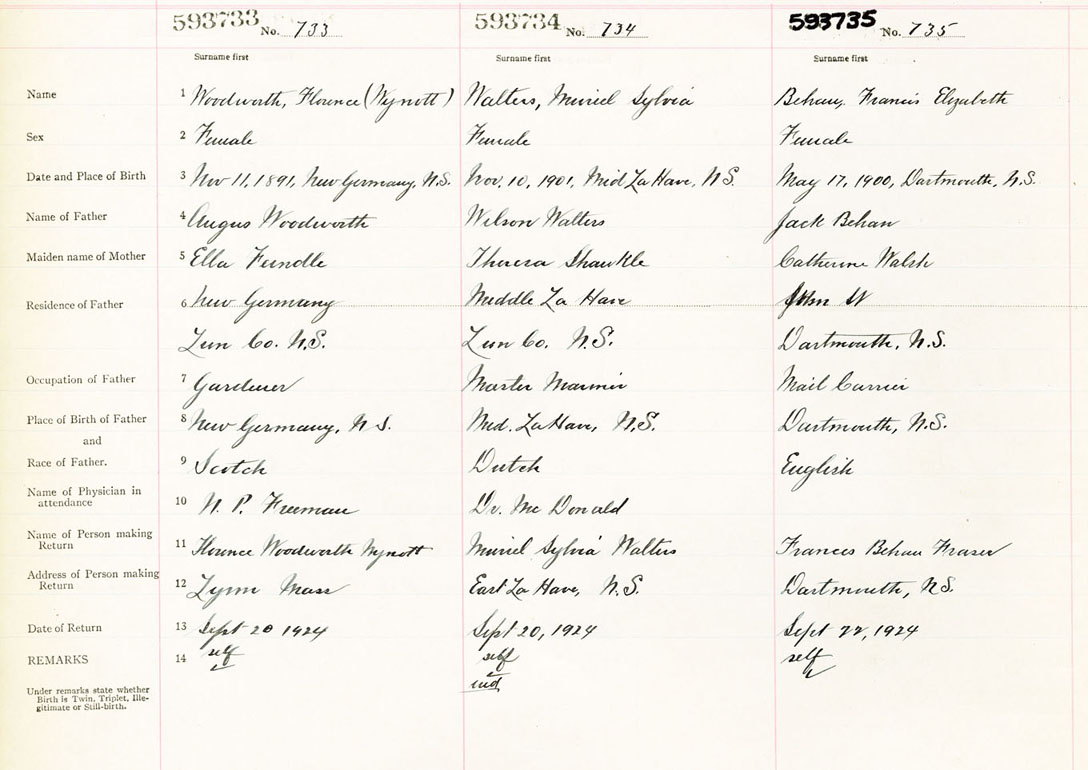 593733 No. 733 593734 No. 734 593735 No. 735
Surname first Surname first Surname first
Name 1 Woodworth, Florence (Wynott) Walters, Muriel Sylvia Behan, Francis Elizabeth
Sex 2 Female Female Female
Date and Place of Birth 3 Nov 11, 1891, New Germany, N.S. Nov. 10, 1901, Mid La Have, N.S. May 17, 1900, Dartmouth, N.S.
Name of Father 4 Angus Woodworth Wilson Walters Jack Behan
Maiden name of Mother 5 Ella Feindle Theresa Shankle Catherine Walsh
Residence of Father 6 New Germany Middle La Have John St
Lun Co. N.S. Lun Co. N.S. Dartmouth, N.S.
Occupation of Father 7 Gardener Master Mariner Mail Carrier
Place of Birth of Father 8 New Germany, N.S. Mid. La Have, N.S. Dartmouth, N.S.
and
Race of Father. 9 Scotch Dutch English
Name of Physician in
attendance 10 N. P. Freeman Dr. Mc Donald
Name of Person making
Return 11 Florence Woodworth Wynott Muriel Sylvia Walters Frances Behan Fraser
Address of Person making
Return 12 Lynn Mass East La Have, N.S. Dartmouth, N.S.
Date of Return 13 Sept 20 1924 Sept 20, 1924 Sept 22, 1924
REMARKS 14 self self self
Under remarks state whether
Birth is Twin, Triplet, Ille-
gitimate or Still-birth.